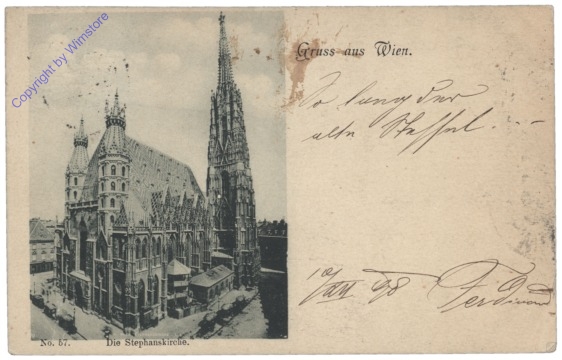 Copyright by Wimstore
Gruss aus Wien.
So lang der
alte Steffel. ..
98 Ferdinand
No. 57. Die Stephanskirche.